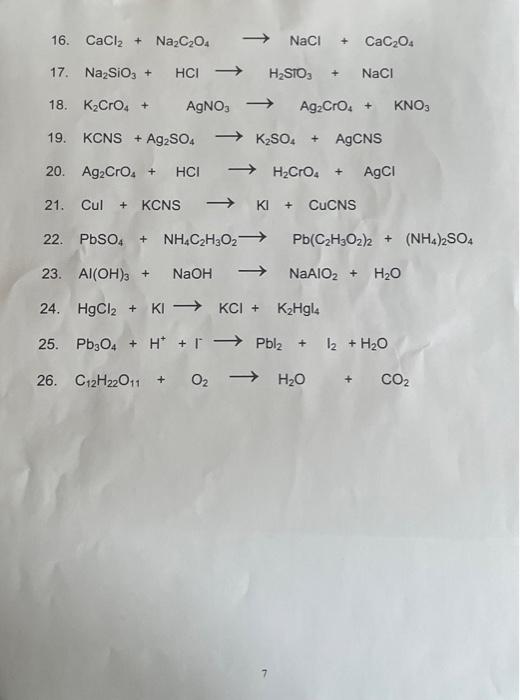 16. CaCl₂ + Na₂C₂O₄ → NaCl + CaC₂O₄
17. Na₂SiO₃ + HCl → H₂SIO₃ + NaCl
18. K₂CrO₄ + AgNO₃ → Ag₂CrO₄ + KNO₃
19. KCNS + Ag₂SO₄ → K₂SO₄ + AgCNS
20. Ag₂CrO₄ + HCl → H₂CrO₄ + AgCl
21. CuI + KCNS → KI + CuCNS
22. PbSO₄ + NH₄C₂H₃O₂ → Pb(C₂H₃O₂)₂ + (NH₄)₂SO₄
23. Al(OH)₃ + NaOH → NaAlO₂ + H₂O
24. HgCl₂ + KI → KCl + K₂HgI₄
25. Pb₃O₄ + H⁺ + I⁻ → PbI₂ + I₂ + H₂O
26. C₁₂H₂₂O₁₁ + O₂ → H₂O + CO₂
7